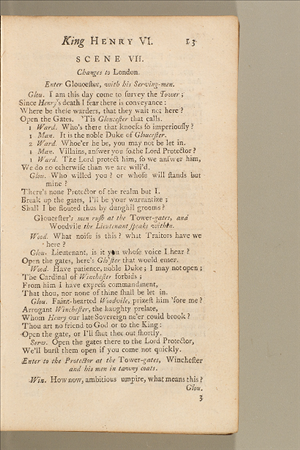 King HENRY VI. 13
SCENE VII.
Changes to London.
Enter Gloucester, with his Serving-men.
Glou. I am this day come to survey the Tower;
Since Henry's death I fear there is conveyance:
Where be these warders, that they wait not here?
Open the Gates. 'Tis Gloucester that calls.
1 Ward. Who's there that knocks so imperiously?
1 Man. It is the noble Duke of Gloucester.
2 Ward. Whoe'er he be, you may not be let in.
1 Man. Villains, answer you so the Lord Protector?
1 Ward. The Lord protect him, so we answer him,
We do no otherwise than we are will'd.
Glou. Who willed you? or whose will stands but
mine?
There's none Protector of the realm but I.
Break up the gates, I'll be your warrantize;
Shall I be flouted thus by dunghill grooms?
Gloucester's men rush at the Tower-gates, and
Woodvile the Lieutenant speaks within.
Wood. What noise is this? what Traitors have we
here?
Glou. Lieutenant, is it you whose voice I hear?
Open the gates, here's Glo'ster that would enter.
Wood. Have patience, noble Duke; I may not open;
The Cardinal of Winchester forbids;
From him I have express commandment,
That thou, nor none of thine shall be let in.
Glou. Faint-hearted Woodvile, prizest him 'fore me?
Arrogant Winchester, the haughty prelate,
Whom Henry our late Sovereign ne'er could brook?
Thou art no friend to God or to the King:
Open the gate, or I'll shut thee out shortly.
Serv. Open the gates there to the Lord Protector,
We'll burst them open if you come not quickly.
Enter to the Protector at the Tower-gates, Winchester
and his men in tawny coats.
Win. How now, ambitious umpire, what means this?
Glou.
3